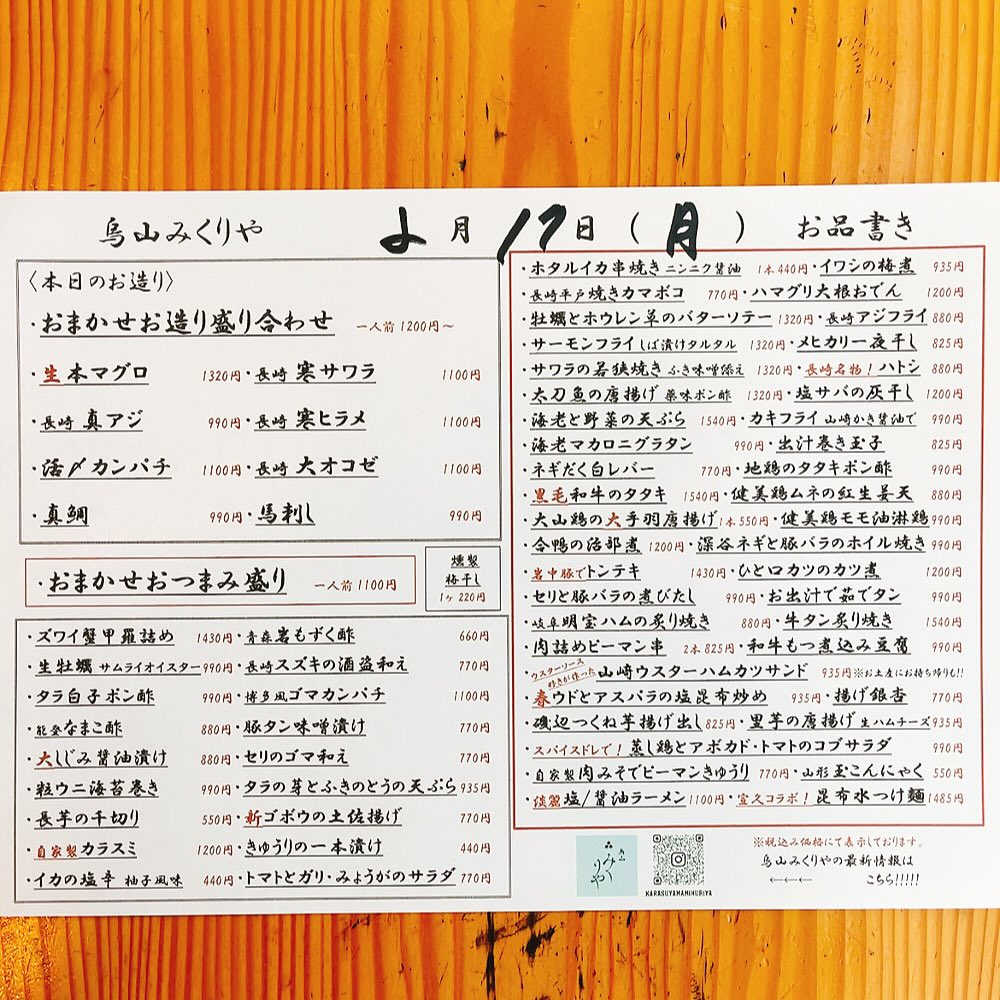 烏山みくりや 2月17日(月) お品書き
〈本日のお造り〉
・おまかせお造り盛り合わせ 一人前1200円〜
・生本マグロ 1320円・長崎 寒サワラ 1100円
・長崎 真アジ 990円・長崎 寒ヒラメ 1100円
・活〆カンパチ 1100円・長崎 大オコゼ 1100円
・真鯛 990円・馬刺し 990円
・おまかせおつまみ盛り 一人前1100円
燻製
梅干し
1ケ220円
・ズワイ蟹甲羅詰め 1430円・青森岩もずく酢 660円
・生牡蠣 サムライオイスター 990円・長崎スズキの酒盗和え 770円
・タラ白子ポン酢 990円・博多風ゴマカンパチ 1100円
・能登なまこ酢 880円・豚タン味噌漬け 770円
・大しじみ醤油漬け 880円・セリのゴマ和え 770円
・粒ウニ海苔巻き 990円・タラの芽とふきのとうの天ぷら 935円
・長芋の千切り 550円・新ゴボウの土佐揚げ 770円
・自家製カラスミ 1200円・きゅうりの一本漬け 440円
・イカの塩辛 柚子風味 440円・トマトとガリ・みょうがのサラダ 770円
・ホタルイカ串焼き ニンニク醤油 1本440円・イワシの梅煮 935円
・長崎平戸焼きカマボコ 770円・ハマグリ大根おでん 1200円
・牡蠣とホウレン草のバターソテー 1320円・長崎アジフライ 880円
・サーモンフライ しば漬けタルタル 1320円・メヒカリ一夜干し 825円
・サワラの若狭焼き ふき味噌添え 1320円・長崎名物!ハトシ 880円
・太刀魚の唐揚げ 薬味ポン酢 1320円・塩サバの灰干し 1200円
・海老と野菜の天ぷら 1540円・カキフライ 山﨑かき醤油で 990円
・海老マカロニグラタン 990円・出汁巻き玉子 825円
・ネギだく白レバー 770円・地鶏のタタキポン酢 990円
・黒毛和牛のタタキ 1540円・健美鶏ムネの紅生姜天 880円
・大山鶏の大手羽唐揚げ 1本550円・健美鶏モモ油淋鶏 990円
・合鴨の治部煮 1200円・深谷ネギと豚バラのホイル焼き 990円
・岩中豚でトンテキ 1430円・ひと口カツのカツ煮 1200円
・セリと豚バラの煮びたし 990円・お出汁で茹でタン 990円
・岐阜明宝ハムの炙り焼き 880円・牛タン炙り焼き 1540円
・肉詰めピーマン串 2本825円・和牛もつ煮込み豆腐 990円
・ウスターソース好きが作った 山﨑ウスターハムカツサンド 935円※お土産にお持ち帰りも!!
・春ウドとアスパラの塩昆布炒め 935円・揚げ銀杏 770円
・磯辺つくね芋揚げ出し 825円・里芋の唐揚げ 生ハムチーズ 935円
・スパイスドレで!蒸し鶏とアボカド・トマトのコブサラダ 990円
・自家製肉みそでピーマンきゅうり 770円・山形玉こんにゃく 550円
・淡麗塩/醤油ラーメン 1100円・宣久コラボ!昆布水つけ麺 1485円
みくりや
KARASUYAMAMIKURIYA
※税込み価格にて表示しております。
烏山みくりやの最新情報は
←←← こちら!!!!!